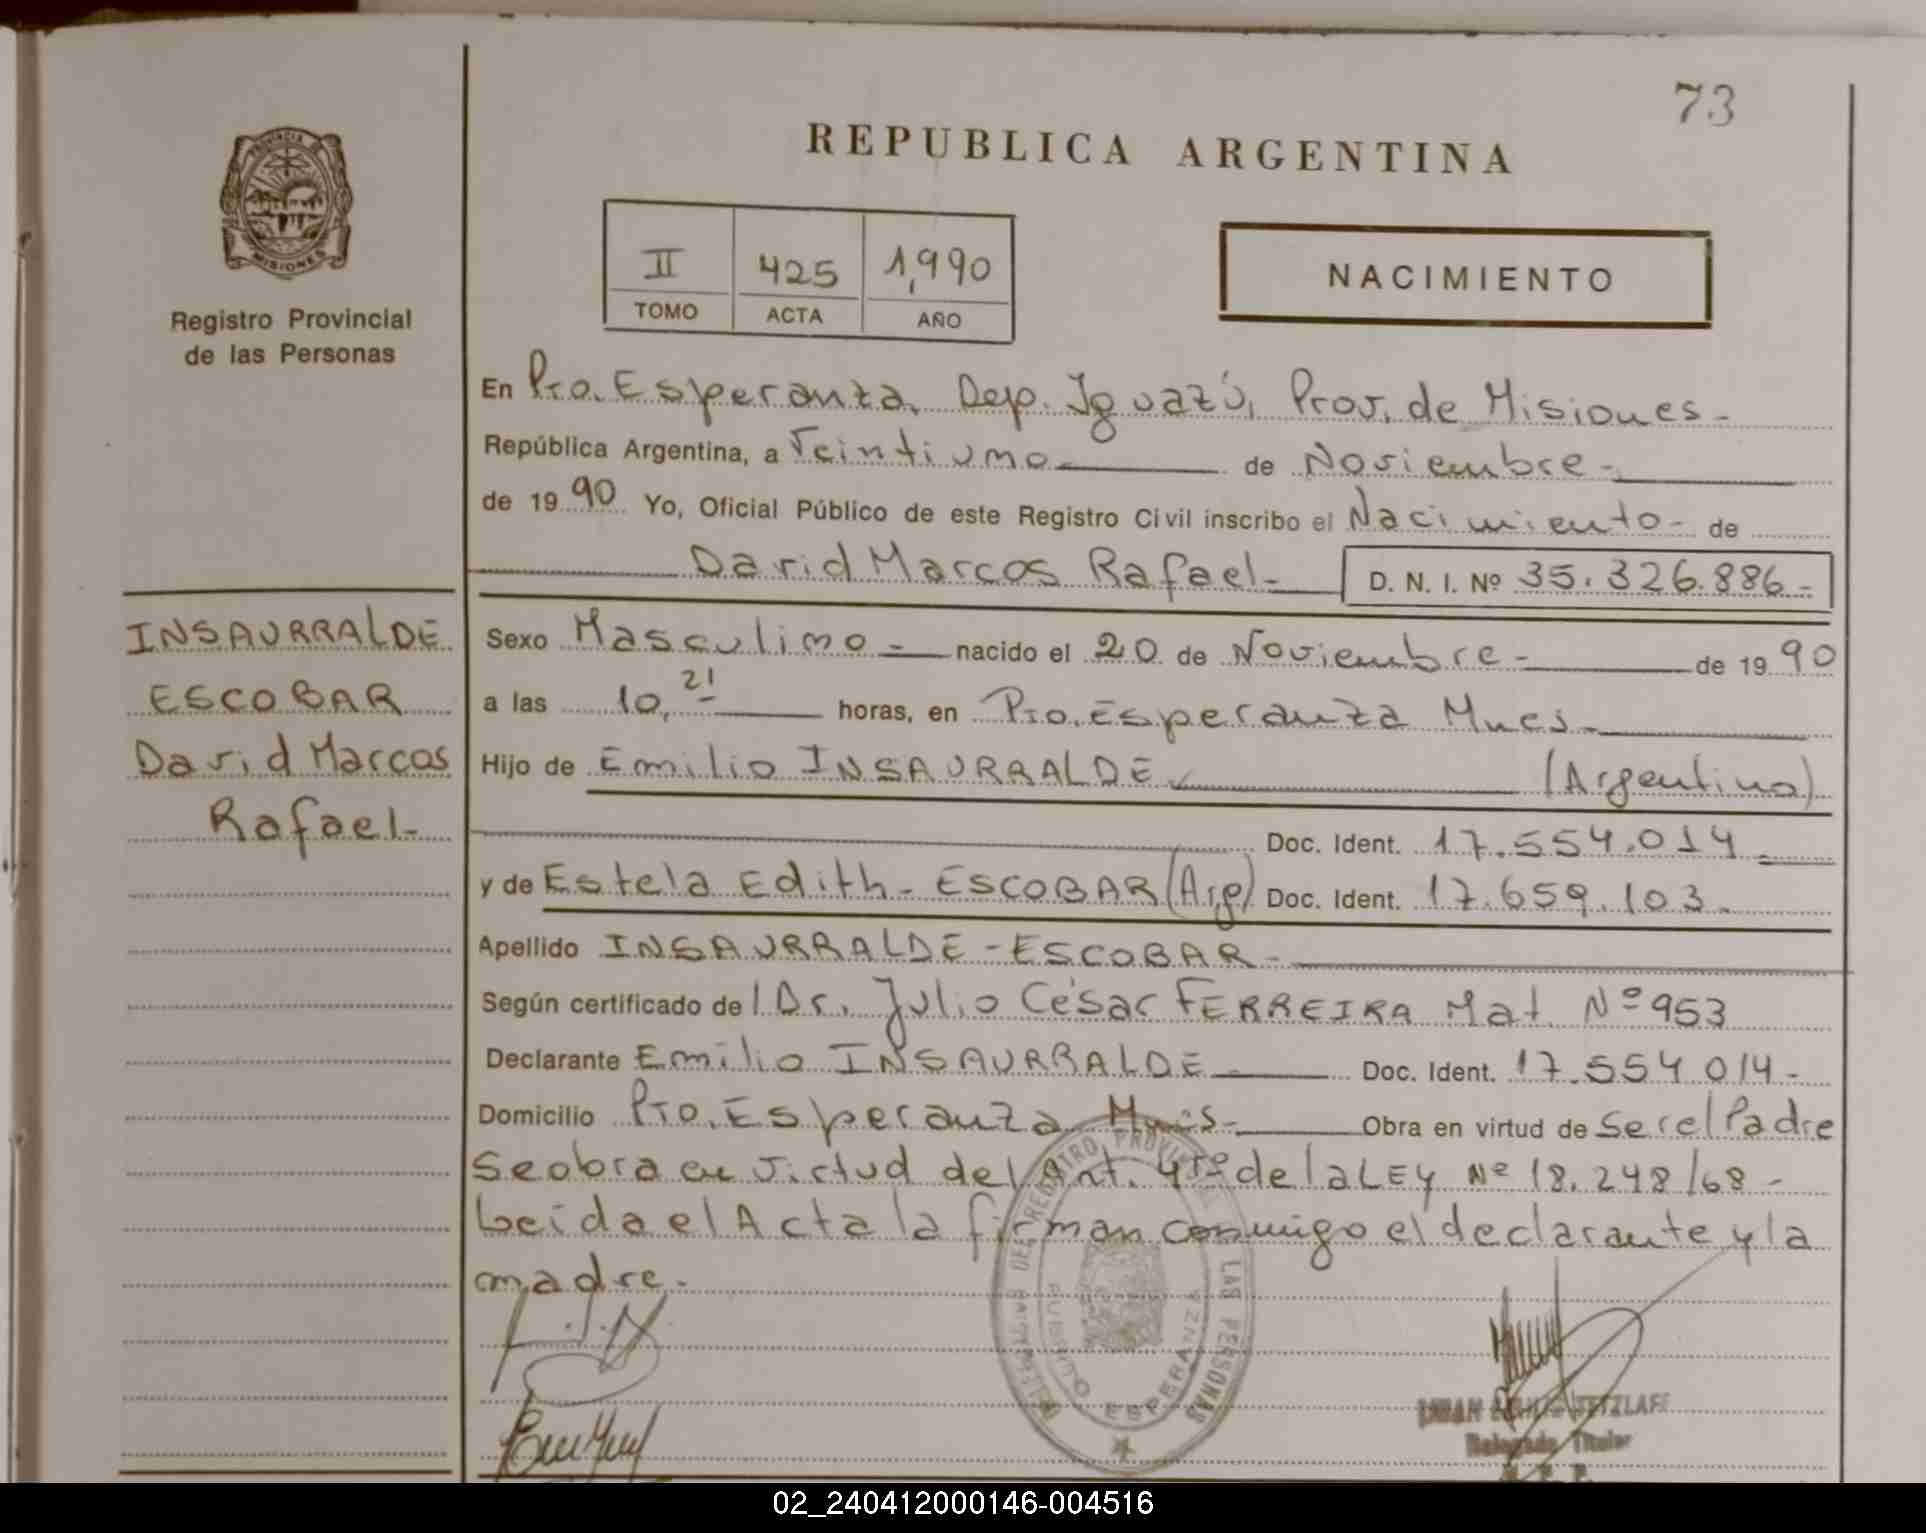 73
REPUBLICA ARGENTINA
PROVINCIA
MISIONES
Registro Provincial
de las Personas
II 425 1,990
TOMO ACTA AÑO
NACIMIENTO
En Pto. Esperanza, Dep. Iguazú, Prov. de Misiones-
República Argentina, a Veintiuno de Noviembre-
de 19 90 Yo, Oficial Público de este Registro Civil inscribo el Nacimiento- de
David Marcos Rafael- D. N. I. Nº 35.326.886-
INSAURRALDE
ESCOBAR
David Marcos
Rafael-
Sexo Masculino- nacido el 20 de Noviembre- de 19 90
a las 10,21 horas, en Pto. Esperanza Mnes-
Hijo de Emilio INSAURRALDE (Argentino)
Doc. Ident. 17.554.014
y de Estela Edith- ESCOBAR (Arg) Doc. Ident. 17.659.103-
Apellido INSAURRALDE-ESCOBAR-
Según certificado del Dr. Julio César FERREIRA Mat Nº 953
Declarante Emilio INSAURRALDE- Doc. Ident. 17.554 014-
Domicilio Pto. Esperanza Mnes- Obra en virtud de Ser el Padre
Se obra en virtud del Art. 4to de la LEY Nº 18.248/68-
Leida el Acta la firman conmigo el declarante y la
madre-
DEL REGISTRO PROVINCIAL DE LAS PERSONAS
PUERTO ESPERANZA
Delegado Titular
02_240412000146-004516